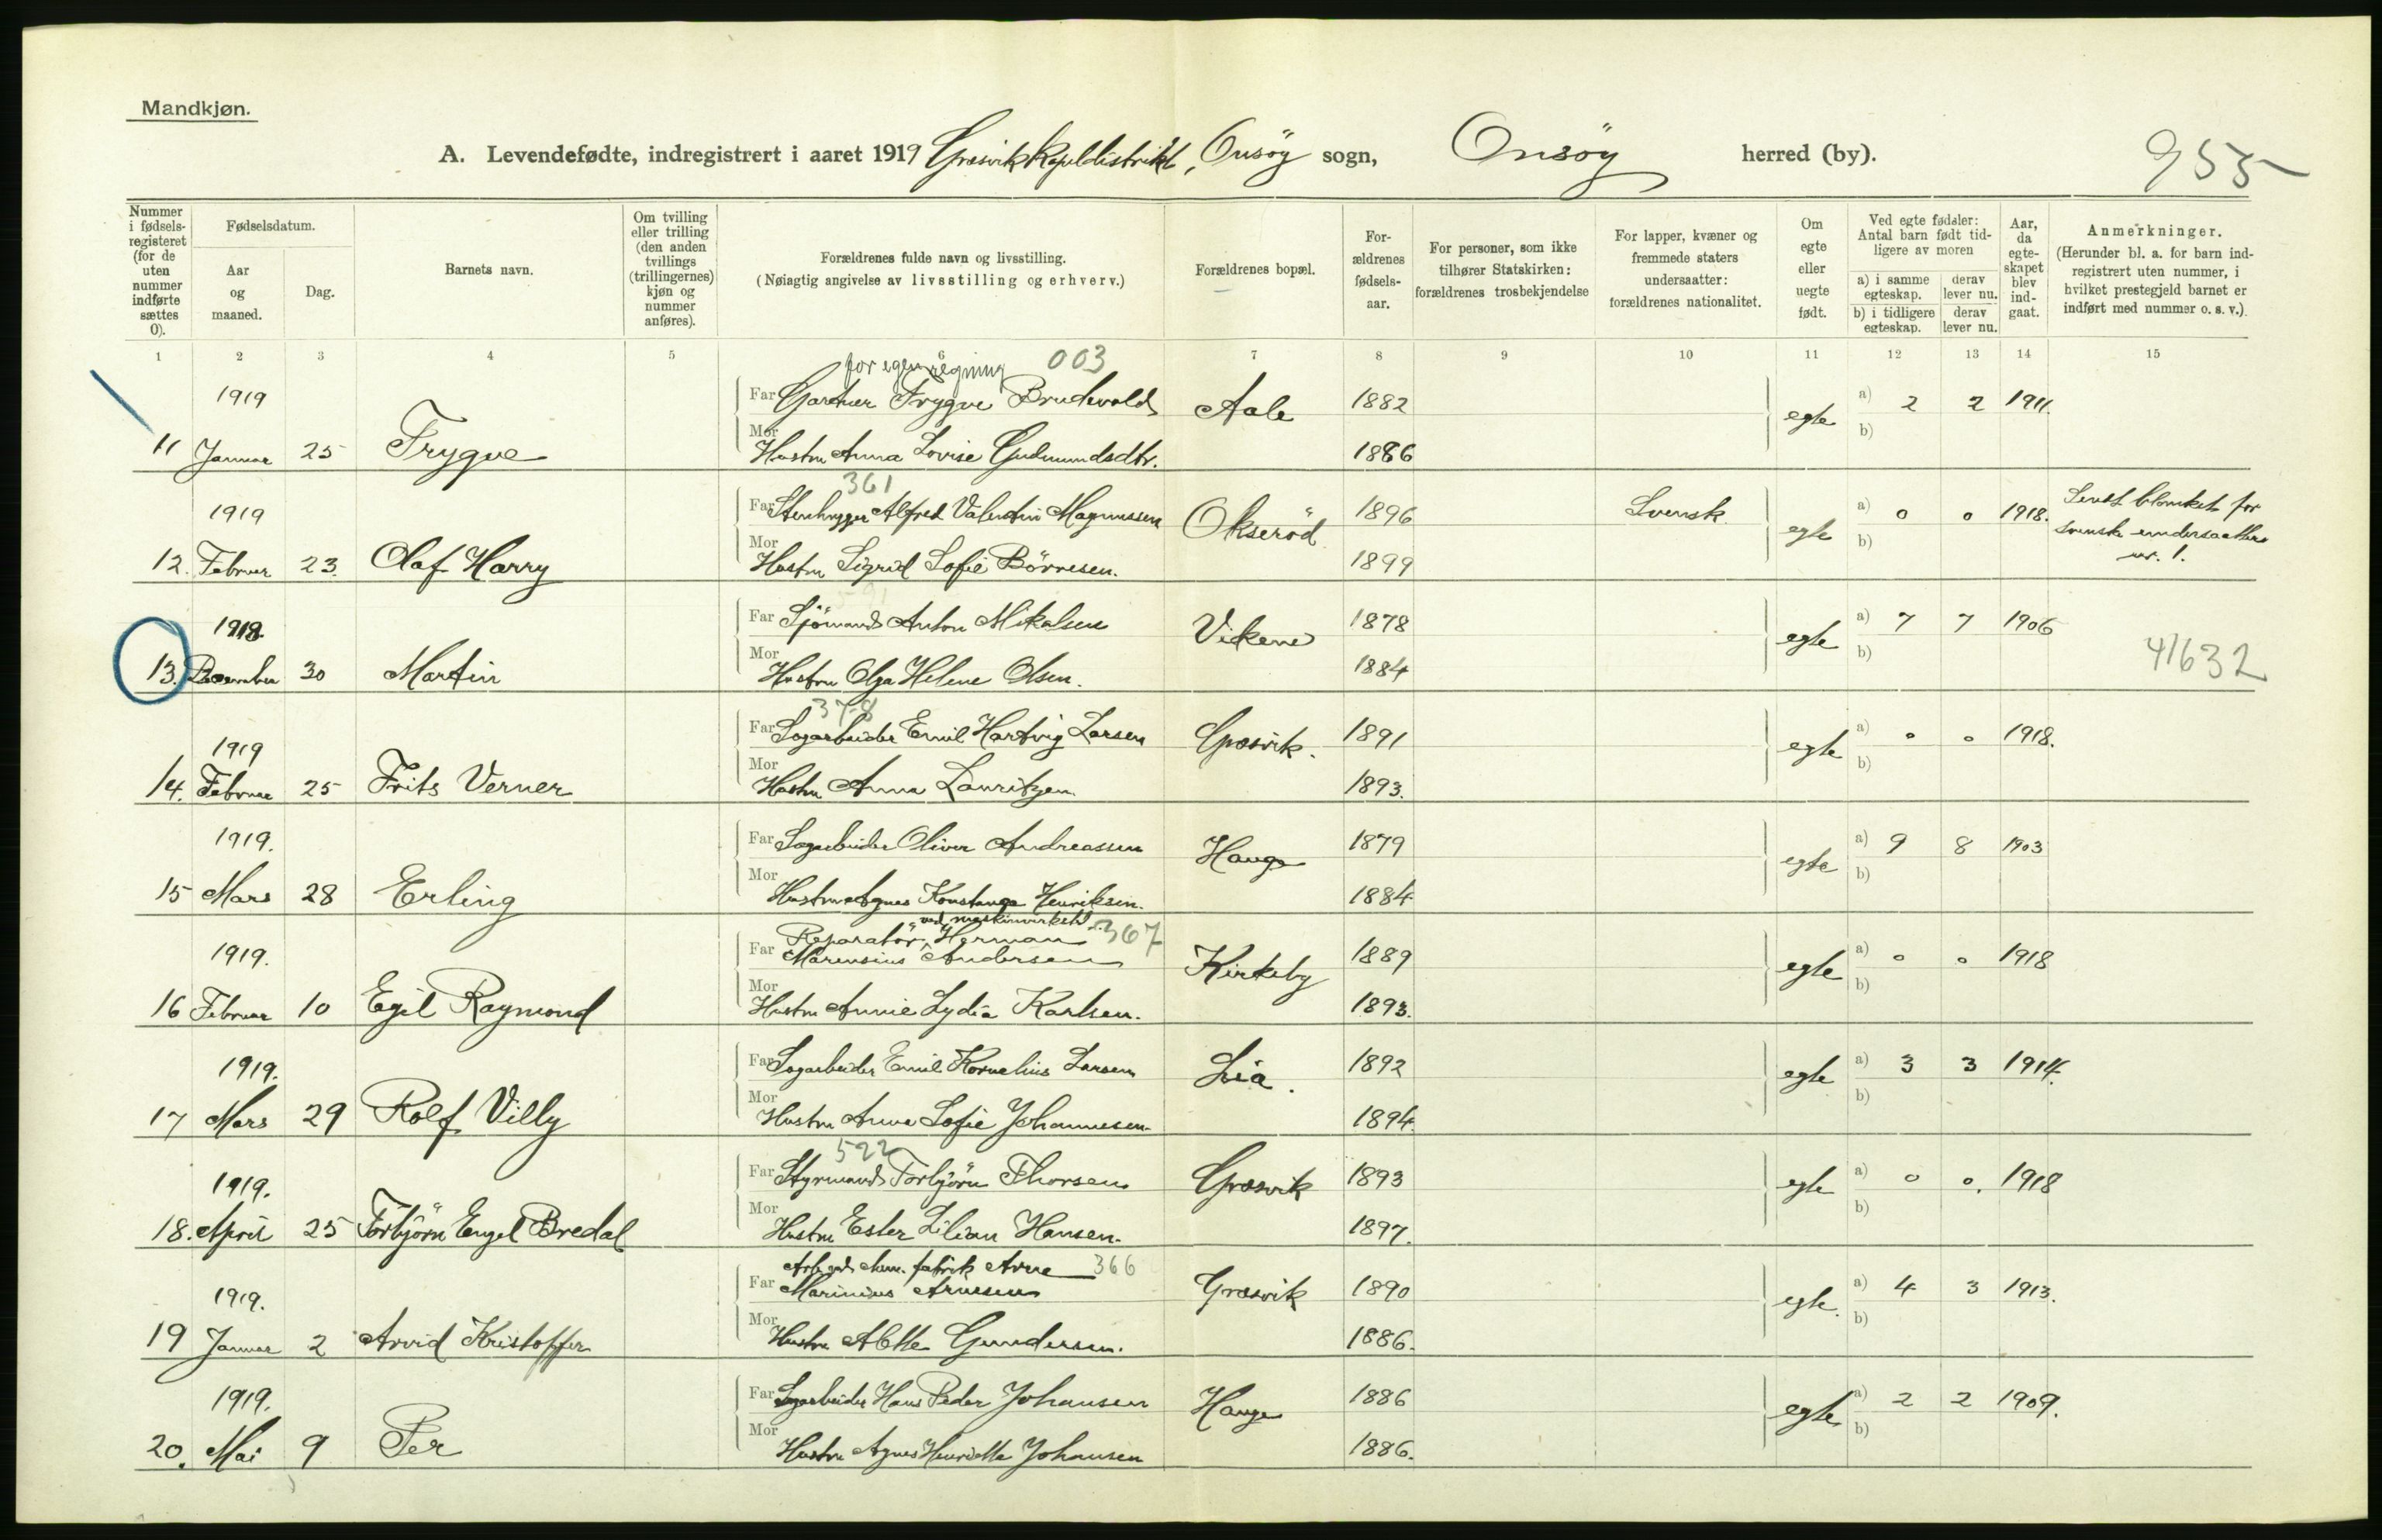 Mandkjøn.
A. Levendefødte, indregistrert i aaret 1919 Græsvik kapeldistrikt, Onsöy sogn, Onsöy herred (by). 955
Nummer i fødselsregisteret (for de uten nummer indførte sættes 0).
Fødselsdatum.
Aar og maaned.
Dag.
Barnets navn.
Om tvilling eller trilling (den anden tvillings (trillingernes) kjøn og nummer anføres).
Forældrenes fulde navn og livsstilling.
(Nøiagtig angivelse av livsstilling og erhverv.)
Forældrenes bopæl.
Forældrenes fødselsaar.
For personer, som ikke tilhører Statskirken: forældrenes trosbekjendelse
For lapper, kvæner og fremmede staters undersaatter: forældrenes nationalitet.
Om egte eller uegte født.
Ved egte fødsler: Antal barn født tidligere av moren
a) i samme egteskap. derav lever nu.
b) i tidligere egteskap. derav lever nu.
Aar, da egteskapet blev indgaat.
Anmerkninger.
(Herunder bl. a. for barn indregistrert uten nummer, i hvilket prestegjeld barnet er indført med nummer o. s. v.).
1 2 3 4 5 6 7 8 9 10 11 12 13 14 15
for egen regning 003
1919 Far Gartner Trygve Brudevold Aale 1882 egte a) 2 2 1911.
11 Januar 25 Trygve Mor Hustru Anna Lovise Gudmundsdtr. 1886 b)
361
1919 Far Stenhugger Alfred Valentin Magnussen Okseröd 1896 Svensk egte a) 0 0 1918. Sendt blanket for svenske undersaatter nr. 1.
12. Februar 23. Olaf Harry Mor Hustru Sigrid Sofie Börresen. 1899 b)
1918. Far Sjömand Anton Mikalsen Vikene 1878 egte a) 7 7 1906
13. December 30 Martin Mor Hustru Olga Helene Olsen. 1884 b) 41632
378
1919 Far Sagarbeider Emil Hartvig Larsen Græsvik. 1891 egte a) 0 0 1918.
14. Februar 25 Frits Verner Mor Hustru Anna Lauritzen. 1893. b)
1919. Far Sagarbeider Oliver Andreassen Hauge 1879 egte a) 9 8 1903
15 Mars 28 Erling Mor Hustru Agnes Konstanse Henriksen. 1884 b)
ved maskinverksted 367
1919. Far Reparatör, Herman Marensius Andersen Kirkeby 1889 egte a) 0 0 1918
16 Februar 10 Egil Raymond Mor Hustru Annie Lydia Karlsen. 1893. b)
1919. Far Sagarbeider Emil Kornelius Larsen Lia. 1892 egte a) 3 3 1914.
17 Mars 29 Rolf Villy Mor Hustru Anna Sofie Johannesen 1894. b)
522
1919. Far Styrmand Torbjörn Thorsen Græsvik 1893 egte a) 0 0. 1918
18. April 25 Torbjörn Engel Bredal Mor Hustru Ester Lilian Hansen. 1897. b)
Arb. ved chem. fabrik Arne 366
1919. Far Marinius Arnesen Græsvik 1890 egte. a) 4 3 1913.
19 Januar 2 Arvid Kristoffer Mor Hustru Alette Gundersen. 1886. b)
1919. Far Sagarbeider Hans Peder Johansen Hauge 1886 egte a) 2 2 1909.
20. Mai 9 Per Mor Hustru Agnes Henriette Johansen 1886. b)